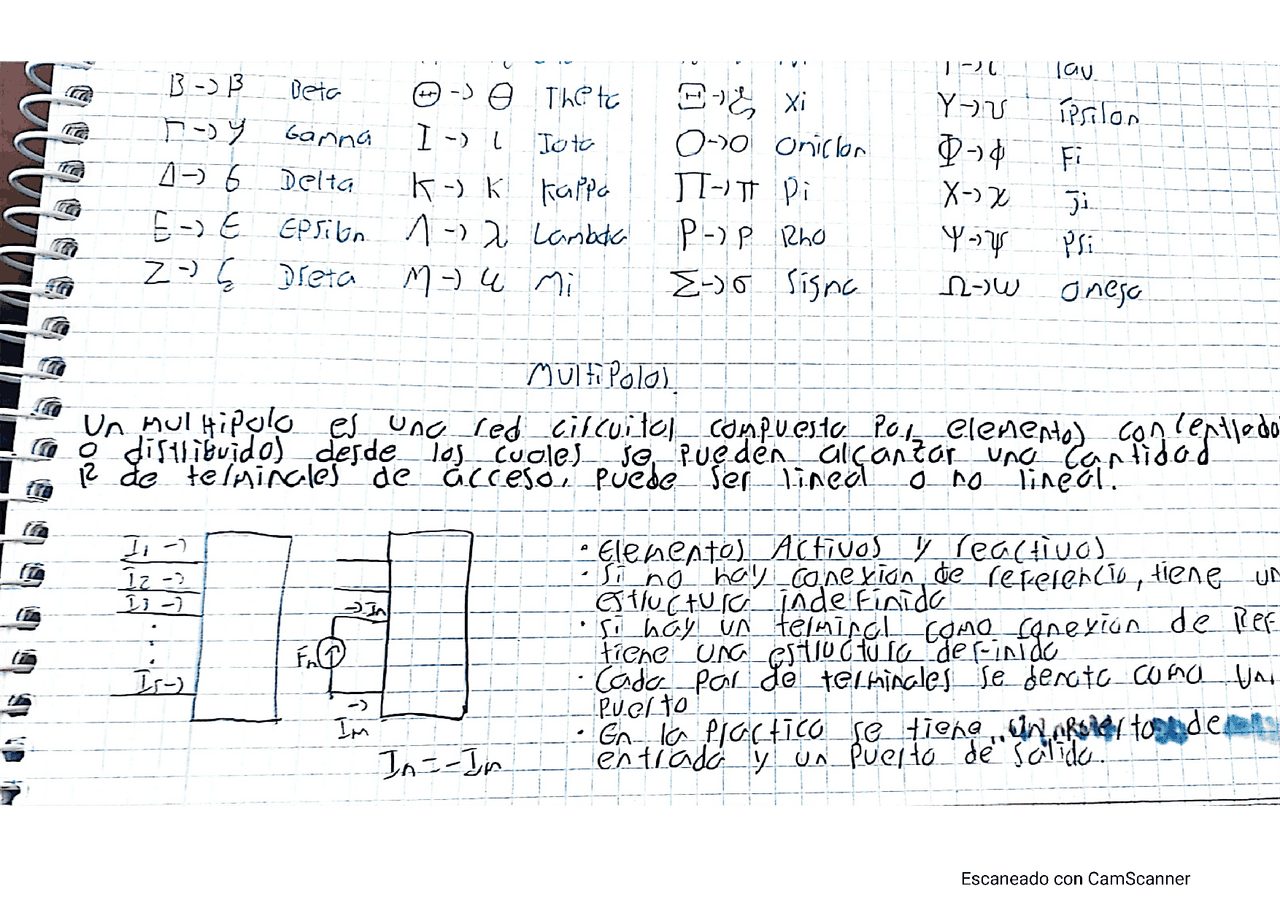 Τ→τ Tau
Β→β Beta Θ→θ Theta Ξ→ξ Xi Υ→υ ípsilon
Γ→γ Gamma Ι→ι Iota Ο→ο Omicron Φ→ϕ Fi
Δ→δ Delta Κ→κ Kappa Π→π Pi Χ→χ Ji
Ε→ε Epsilon Λ→λ Lambda Ρ→ρ Rho Ψ→ψ Psi
Ζ→ζ Dseta Μ→μ Mi Σ→σ Sigma Ω→ω omega
Multipolos
Un multipolo es una red circuital compuesta por elementos concentrado
o distribuidos desde los cuales se pueden alcanzar una cantidad
R de terminales de acceso, puede ser lineal o no lineal.
I1→
I2→
I3→
Ir→
→In
Fn
→
Im
In=-Im
· Elementos Activos y reactivos
· Si no hay conexión de referencia, tiene un
estructura indefinida
· Si hay un terminal como conexion de Ref
tiene una estructura definida
· Cada par de terminales se denota como un
puerto
· En la practica se tiene un puerto de
entrada y un puerto de salida.
Escaneado con CamScanner